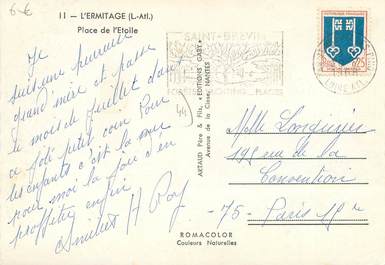 6-€
11 — L'ERMITAGE (L.-Atl.)
Place de l'Etoile
Je
suis une
grand'mère et passe
le mois de Juillet dans
ce joli petit coin. Pour
les enfants c'est la mer
pour moi la joie d'en
profiter enfin
44
ARTAUD Père & Fils, "EDITIONS GABY"
Avenue de la Close, NANTES
SAINT-BREVIN
FORETS YACHTING PLAGES
REPUBLIQUE FRANÇAISE
0,25
LOIRE ATL.
Mlle
195 rue de la
Convention
75- Paris 15me
ROMACOLOR
Couleurs Naturelles